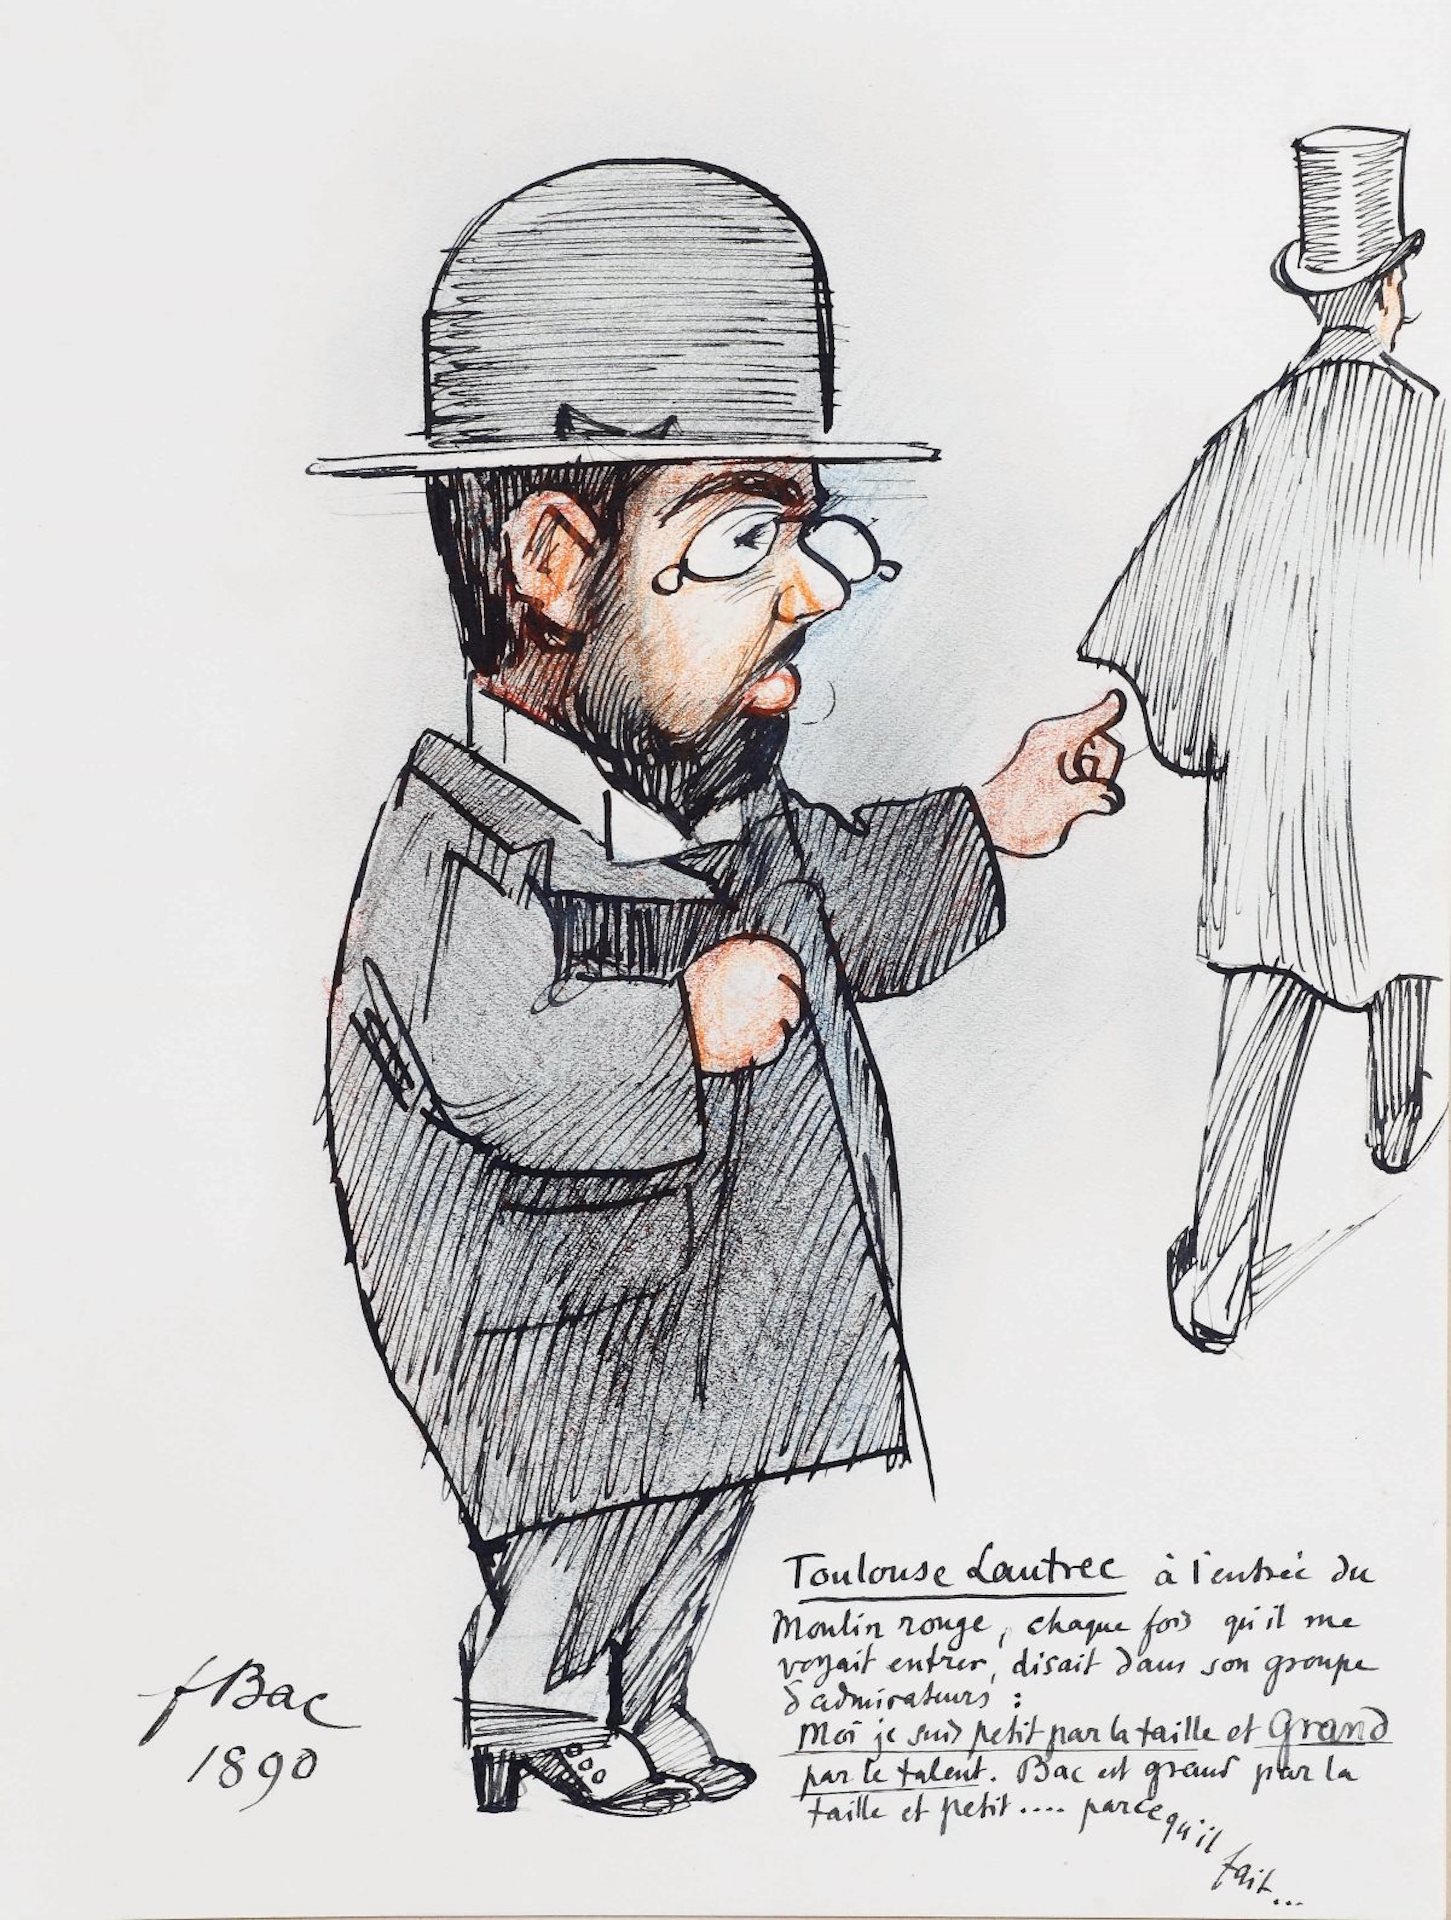 Toulouse Lautrec à l'entrée du
Moulin rouge, chaque fois qu'il me
voyait entrer, disait dans son groupe
d'admirateurs :
Moi je suis petit par la taille et Grand
par le talent. Bac est grand par la
taille et petit.... parce qu'il
fait...
fBac
1890